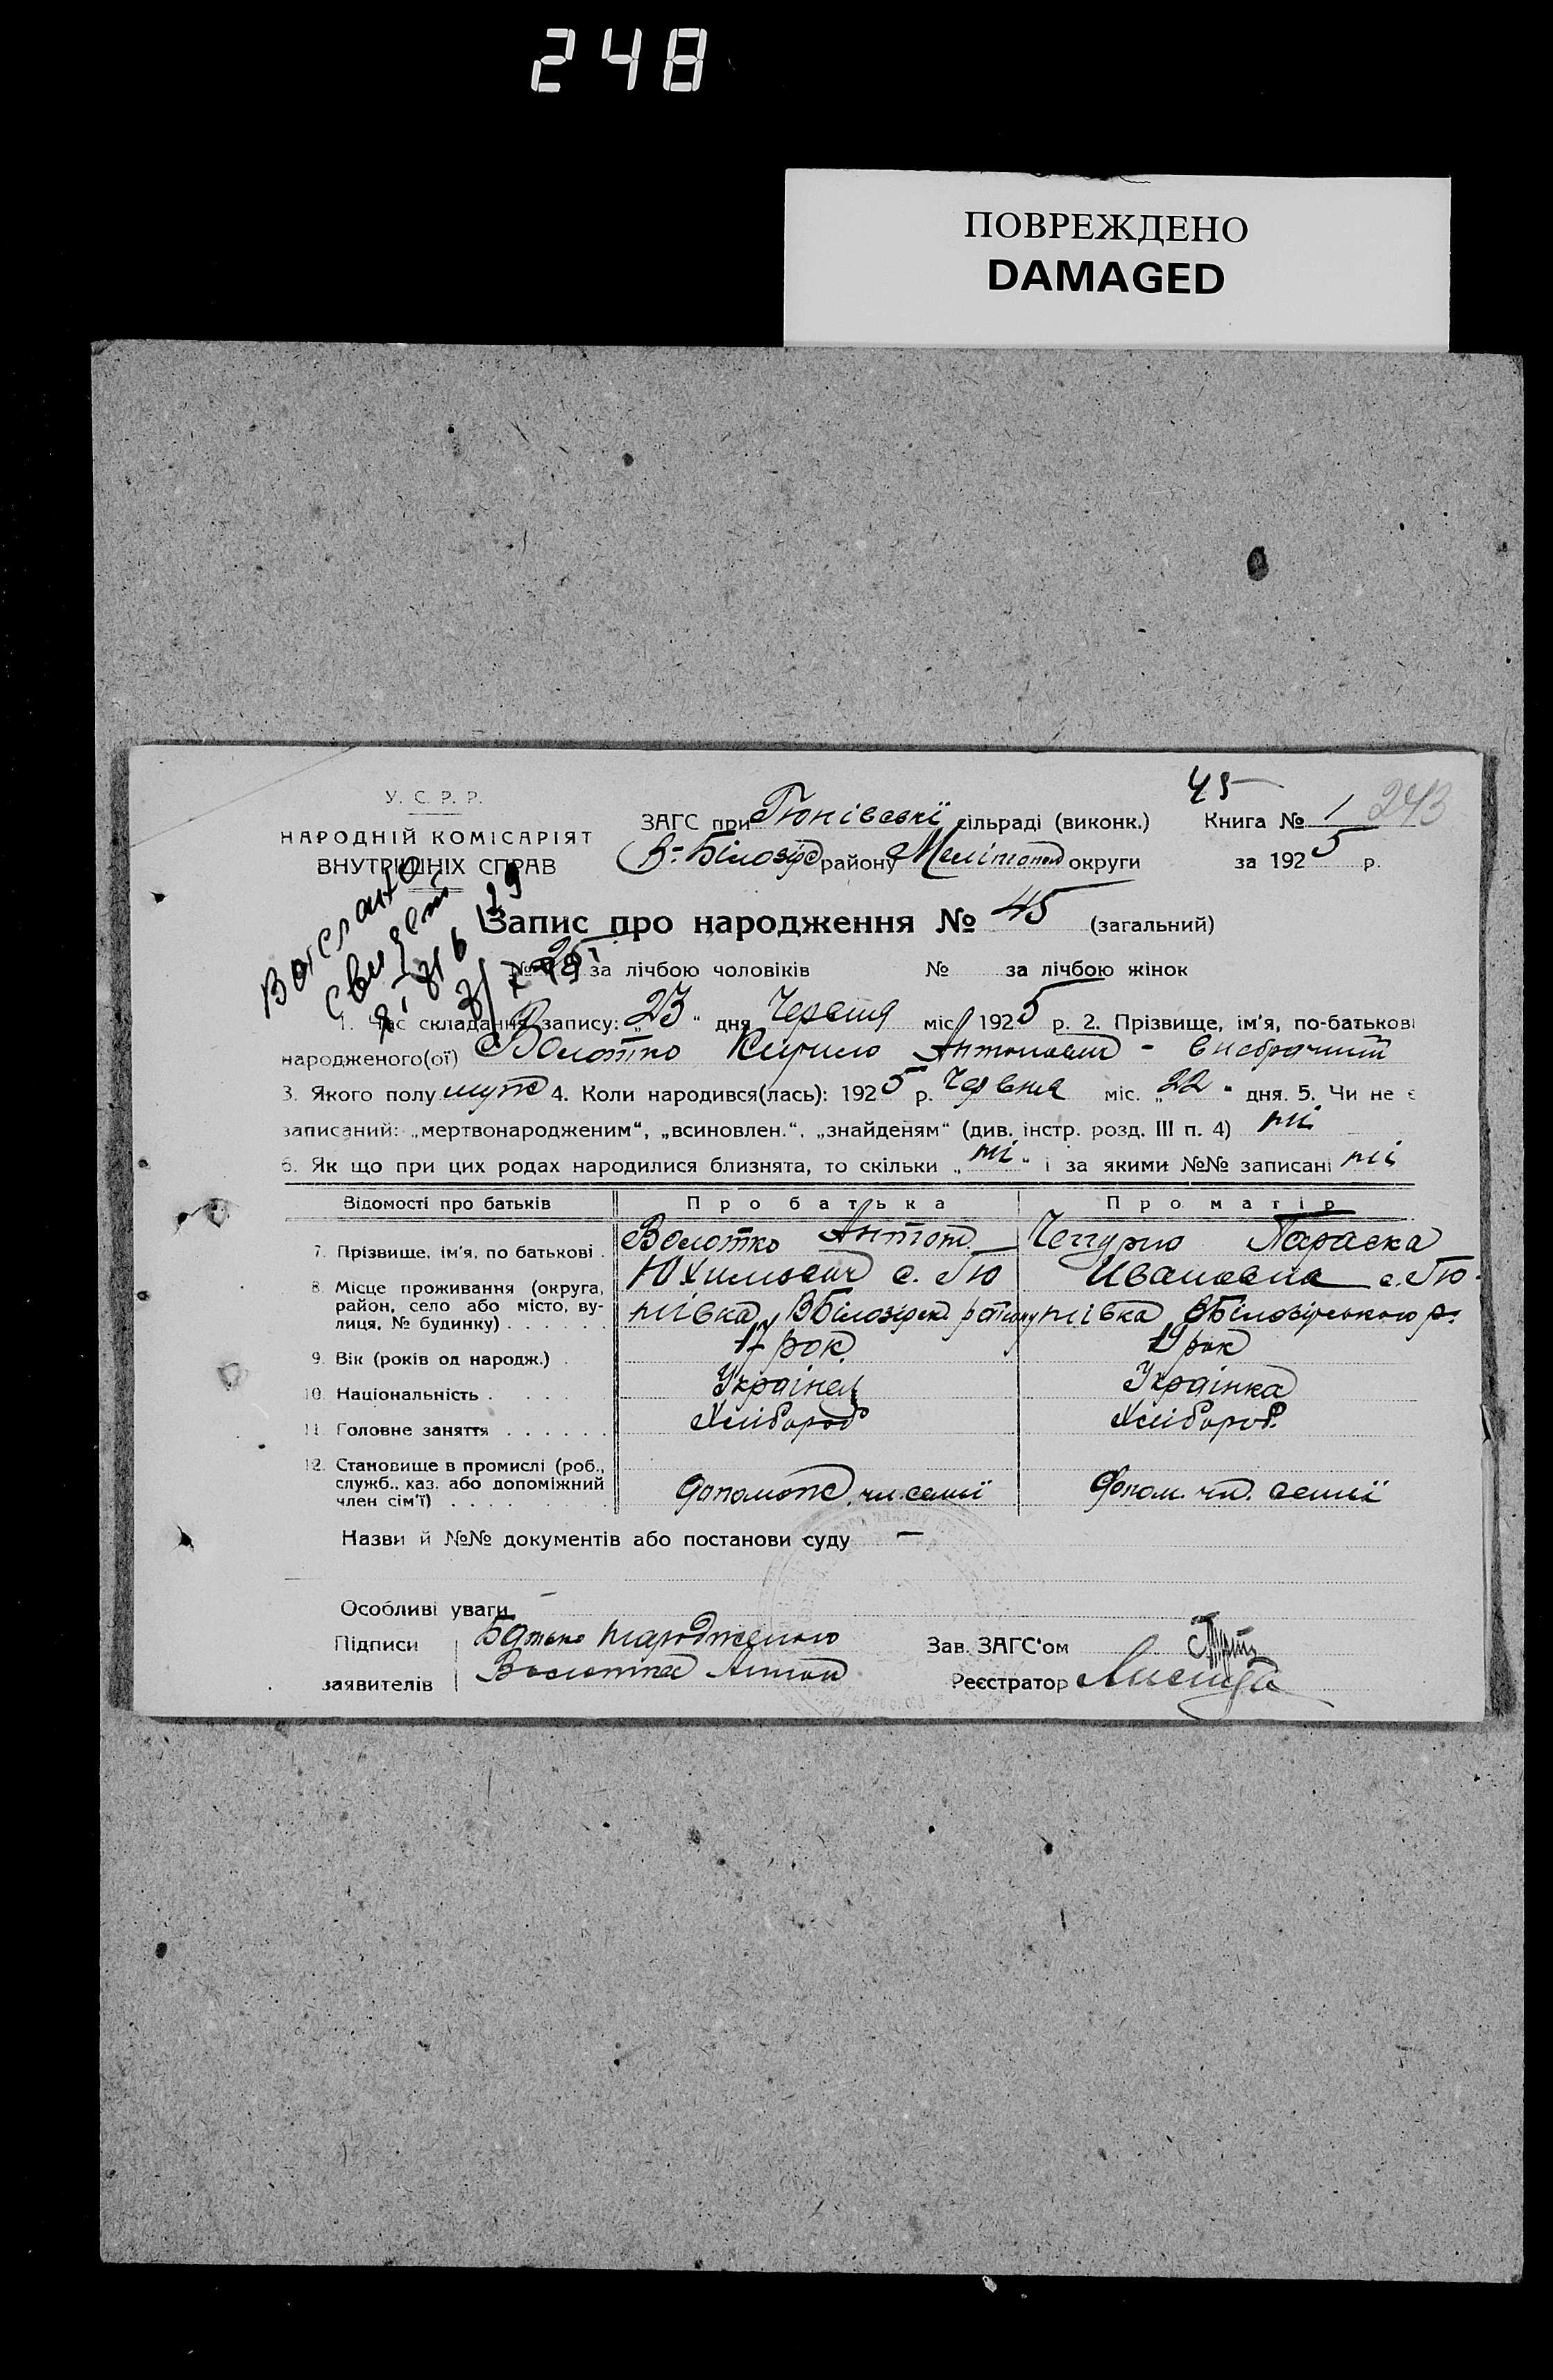 248
ПОВРЕЖДЕНО
DAMAGED
45
243
У. С. Р. Р.
НАРОДНІЙ КОМІСАРІЯТ
ВНУТРІШНІХ СПРАВ
ЗАГС при Тюнівські сільраді (виконк.) Книга № 1
В-Білозір району Меліпопол округи за 1925 р.
Запис про народження № 45 (загальний)
№ 25 за лічбою чоловіків № за лічбою жінок
1. Час складання запису: „23“ дня Червня міс. 1925 р. 2. Прізвище, ім'я, по-батькові
народженого(ої) Волотко Кирило Антонович -
3. Якого полу муж 4. Коли народився(лась): 1925 р. Червня міс. „22“ дня. 5. Чи не є
записаний: „мертвонародженим“, „всиновлен.“, „знайденям“ (див. інстр. розд. III п. 4) ні
6. Як що при цих родах народилися близнята, то скільки „ні“ і за якими №№ записані ні
Відомості про батьків Про батька Про матір
7. Прізвище, ім'я, по батькові . Волотко Антон Параска
8. Місце проживання (округа, Юхимович с. Тю Ивановна с. Тю-
район, село або місто, ву- нівка, ВБілозірск. району нівка ВБілозірського р.
лиця, № будинку) . . . . .
9. Вік (років од народж.) . 17 рок. 19 рок
10. Національність . . . . Українец Українка
11. Головне заняття . . . . . . Хлібороб Хлібороб.
12. Становище в промислі (роб.,
служб., хаз. або допоміжний допомож. чл. семії допом. чл. семії
член сім'ї) . . . . . . . .
Назви й №№ документів або постанови суду —
Особливі уваги —
Підписи Батько народженого Зав. ЗАГС'ом
заявителів Волотка Антон Реєстратор